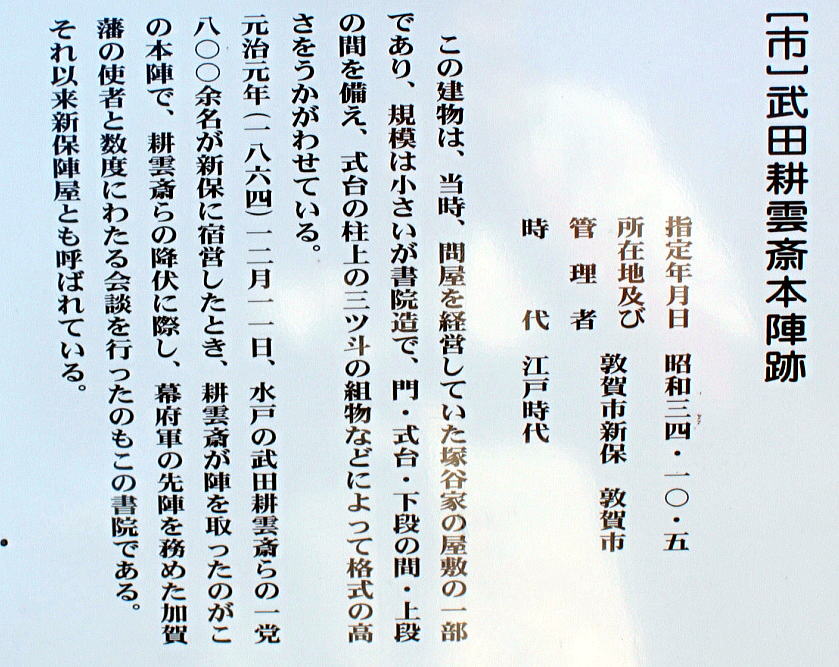 [市]武田耕雲斎本陣跡
指定年月日 昭和三四・一〇・五
所在地及び
管理者 敦賀市新保 敦賀市
時代 江戸時代
この建物は、当時、問屋を経営していた塚谷家の屋敷の一部
であり、規模は小さいが書院造で、門・式台・下段の間・上段
の間を備え、式台の柱上の三ツ斗の組物などによって格式の高
さをうかがわせている。
元治元年(一八六四)一二月一一日、水戸の武田耕雲斎らの一党
八〇〇余名が新保に宿営したとき、耕雲斎が陣を取ったのがこ
の本陣で、耕雲斎らの降伏に際し、幕府軍の先陣を務めた加賀
藩の使者と数度にわたる会談を行ったのもこの書院である。
それ以来新保陣屋とも呼ばれている。